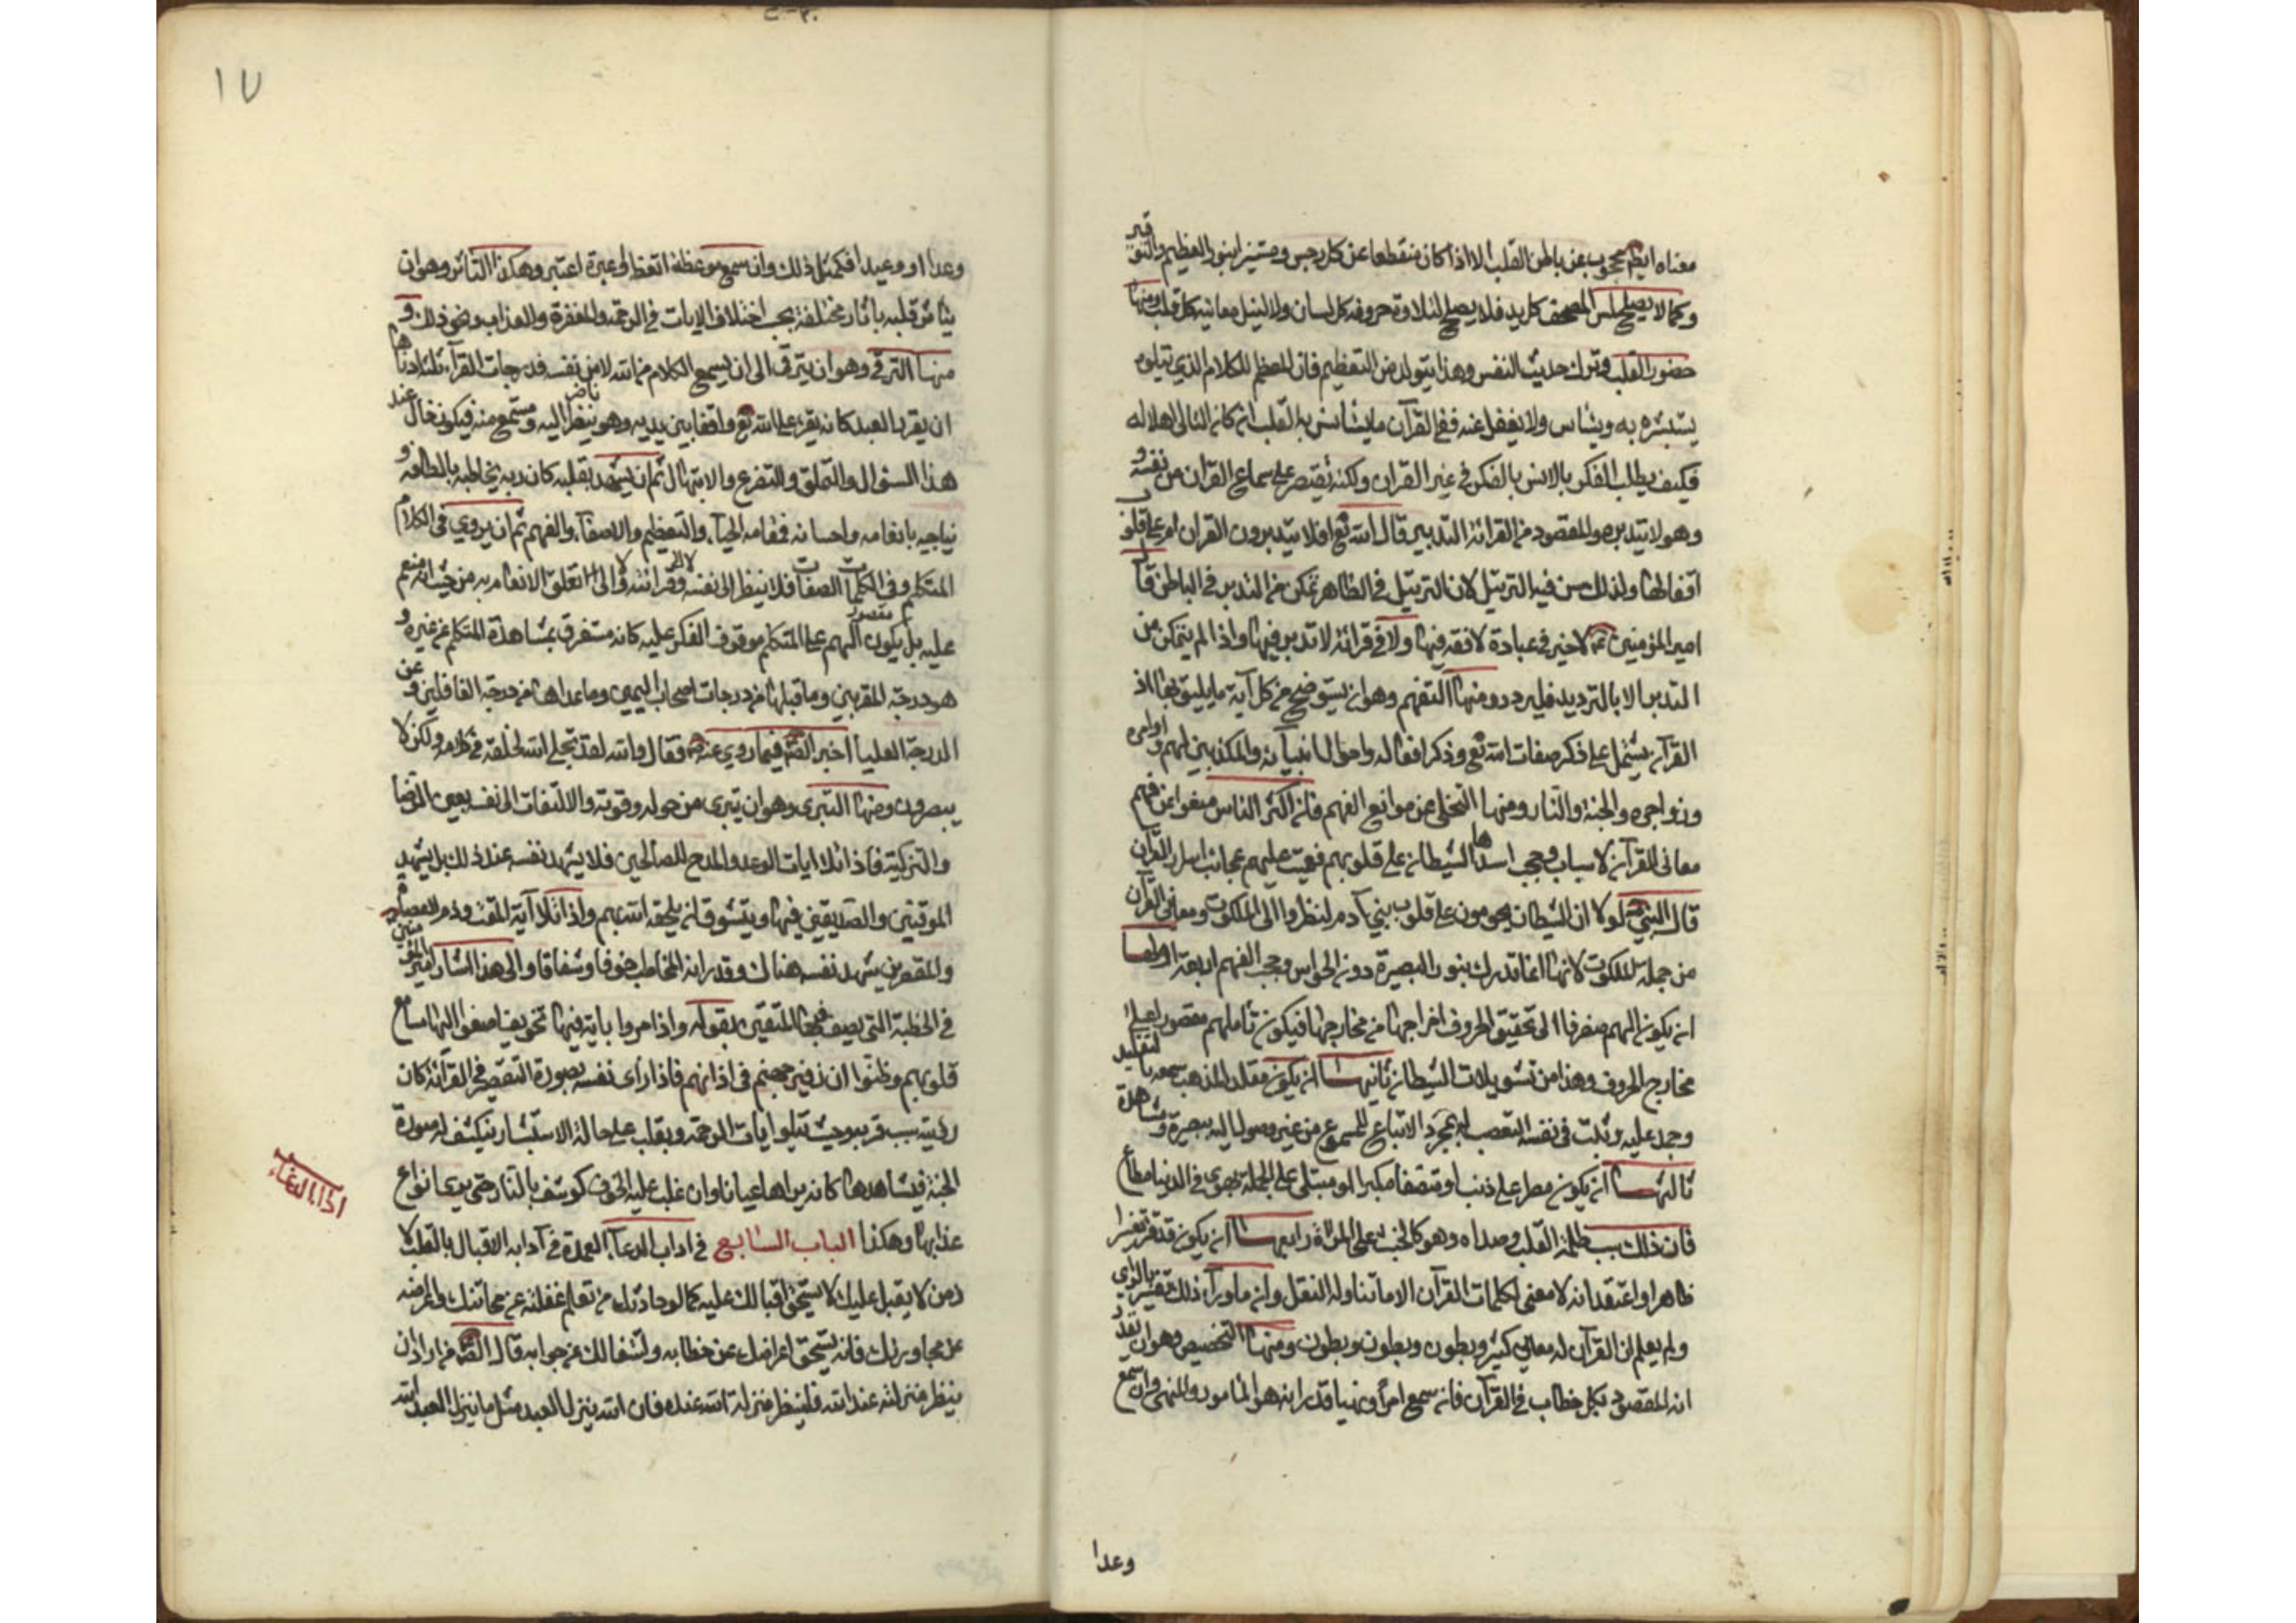 معناه ايضا محجوب عن باطن القلب الا اذا كان منقطعا عن كل رجس ومستنيرا بنور التعظيم والتوقير
وكما لا يصلح لمس المصحف كل يد فلا يصلح لتلاوة حروفه كل لسان ولا لنيل معانيه كل قلب ومنها
حضور القلب وترك حديث النفس وهذا يتولد من التعظيم فان المعظم للكلام الذي يتلوه
يستبشر به ويستأنس ولا يغفل عنه ففي القرآن ما يستأنس به القلب ان كان التالي اهلا له
فكيف يطلب الفكر بالانس بالفكر في غير القرآن ولكنه يقتصر على سماع القرآن من نفسه و
وهو لا يتدبره والمقصود من القرائة التدبير قال الله تع افلا يتدبرون القرآن ام على قلوب
اقفالها ولذلك سن فيه الترتيل لان الترتيل في الظاهر تمكن من التدبر في الباطن قال
امير المؤمنين ع لا خير في عبادة لا فقه فيها ولا في قرائة لا تدبر فيها واذا لم يتمكن من
التدبر الا بالترديد فليردد ومنها التفهم وهو ان يستوضح من كل آية ما يليق بها اذ
القرآن يشتمل على ذكر صفات الله تع وذكر افعاله واحوال انبيائه والمكذبين لهم و اوامره
وزواجره والجنة والنار ومنها التخلي عن موانع الفهم فان اكثر الناس منعوا عن فهم
معاني القرآن لاسباب وحجب اسدلها الشيطان على قلوبهم فعميت عليهم عجائب اسرار القرآن
قال النبي ص لولا ان الشيطان يحومون على قلوب بني آدم لنظروا الى الملكوت ومعاني القرآن
من جملة الملكوت لانها انما تدرك بنور البصيرة دون الحواس وحجب الفهم اربعة اولها
ان يكون الهم منصرفا الى تحقيق الحروف اخراجها من مخارجها فيكون تاملهم مقصورا على
مخارج الحروف وهذا من تسويلات الشيطان ثانيها ان يكون مقلدا لمذهب سمعه بالتقليد
وجمد عليه وثبت في نفسه التعصب له بمجرد الاتباع للمسموع من غير وصول اليه ببصيرة ومشاهدة
ثالثها ان يكون مصرا على ذنب او متصفا بكبر او مبتلى على الجملة بهوى في الدنيا مطاع
فان ذلك سبب ظلمة القلب وصداه وهو كالخبث على المرآة رابعها ان يكون قد قرء تفسيرا
ظاهرا واعتقد انه لا معنى لكلمات القرآن الا ما تناوله النقل وان ما وراء ذلك تفسير بالراي
ولم يعلم ان القرآن له معاني كثير وبطون وبطون وبطون وبطون ومنها التخصيص وهو ان يقدر
انه المقصود بكل خطاب في القرآن فان سمع امرا ونهيا قدر انه هو المامور والمنهي وان سمع
وعدا
١٧
وعدا او وعيدا فكمثل ذلك وان سمع موعظة اتعظ او عبرة اعتبر وهكذا التأثر وهو ان
يتأثر قلبه بآثار مختلفة بحسب اختلاف الايات في الرحمة والمغفرة والعذاب ونحو ذلك و
منها الترقي وهو ان يترقى الى ان يسمع الكلام من الله لا من نفسه فدرجات القرآءة ثلثة ادناها
ان يقدر العبد كانه يقرء على الله تع واقفا بين يديه وهو ناظر اليه ومستمع منه فيكون حاله عند
هذا السؤال والتملق والتضرع والابتهال ثم ان يشهد بقلبه كان ربه يخاطبه بالطافه و
يناجيه بانعامه واحسانه فمقامه الحياء والتعظيم والاصغاء والفهم ثم ان يروي في الكلام
المتكلم وفي الكلمات الصفات فلا ينظر الى نفسه ولا الى قرائته ولا الى تعلق الانعام به من حيث انه منعم
عليه بل يكون مقصور الهم على المتكلم موقوف الفكر عليه كانه مستغرق بمشاهدة المتكلم عن غيره و
هو درجة المقربين وما قبلها من درجات اصحاب اليمين وما عداها من درجة الغافلين و عن
الدرجة العليا اخبر الصادق فيما روي عنه ع فقال والله لقد تجلى الله لخلقه في كلامه ولكن لا
يبصرون ومنها التبرى وهو ان يتبرى من حوله وقوته والالتفات الى نفسه بعين الرضا
والتزكية فاذا تلا ايات الوعد والمدح للصالحين فلا يشهد نفسه عند ذلك بل يشهد
الموقنين والصديقين فيها ويتشوق ان يلحقه الله بهم واذا تلا آية المقت وذم العصاة
والمقصرين يشهد نفسه هناك وقدر انه المخاطب خوفا وشفاقا والى هذا اشار امير المؤمنين
في الخطبة التي يصف فيها المتقين بقوله واذا مروا باية فيها تخويف اصغوا اليها مسامع
قلوبهم وظنوا ان زفير جهنم في اذانهم فاذا راى نفسه بصورة التقصير في القرآئة كان
رؤيته سبب قربه وحيث يتلو ايات الرحمة ويغلب على حاله الاستبشار ينكشف له صورة
الجنة فيشاهدها كانه يراها عيانا وان غلب عليه الخوف كوشف بالنار حتى يرى انواع
عذابها وهكذا الباب السابع في اداب الدعاء العمدة في آدابه الاقبال بالقلب لا
ن من لا يقبل عليك لا يستحق اقبالك عليه كما لو حادثك من تعلم غفلته عن محادثتك واعراضه
عن محاورتك فانه يستحق اعراضك عن خطابه واشتغالك عن جوابه قال الصادق من اراد ان
ينظر منزلته عند الله فلينظر منزلة الله عنده فان الله ينزل العبد مثل ما ينزل العبد الله
اداب الدعاء